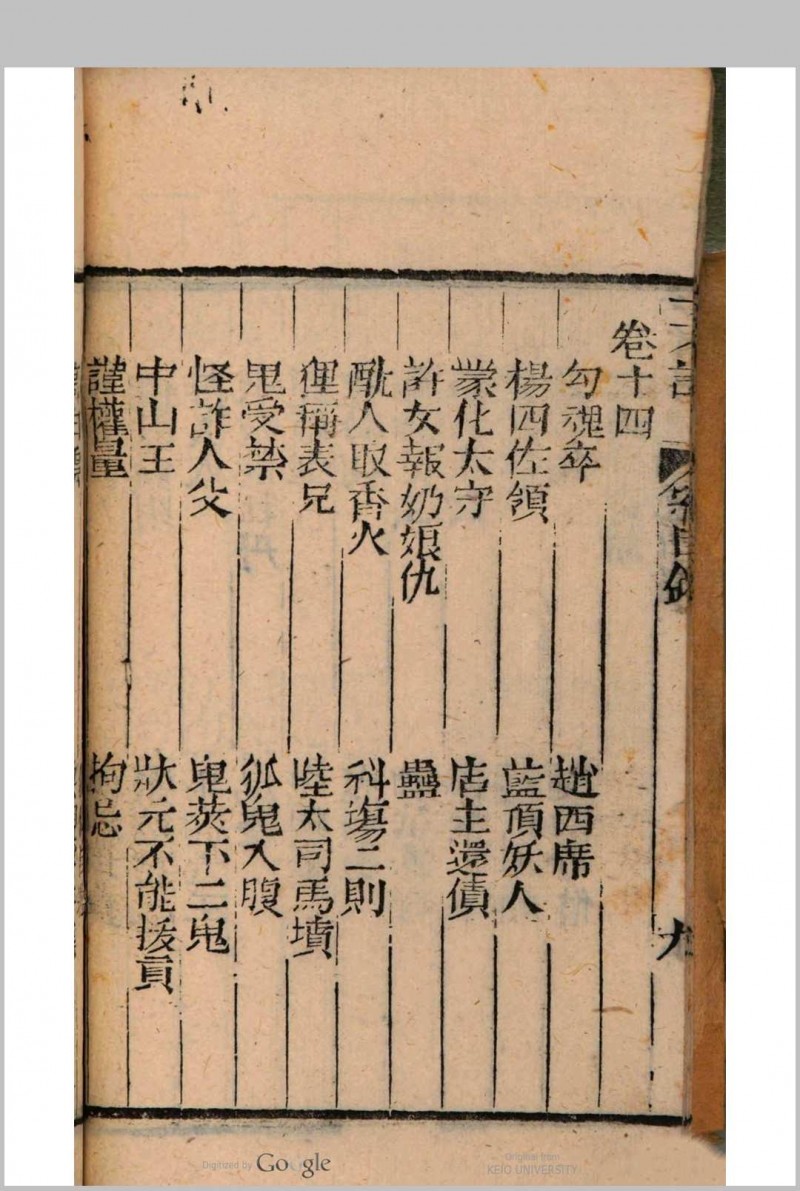 卷十四
勾魂卒
趙西席
楊四佐領
藍頂妖人
蒙化太守
店主還債
許女報奶娘仇
蠱
酖人取香火
科塲二則
狸稱表兄
陸太司馬墳
鬼受禁
狐鬼入腹
怪詐人父
皁莢下二鬼
中山王
狀元不能拔貢
謹權量
拘忌
Digitized by Google
Original from
KEIO UNIVERSITY